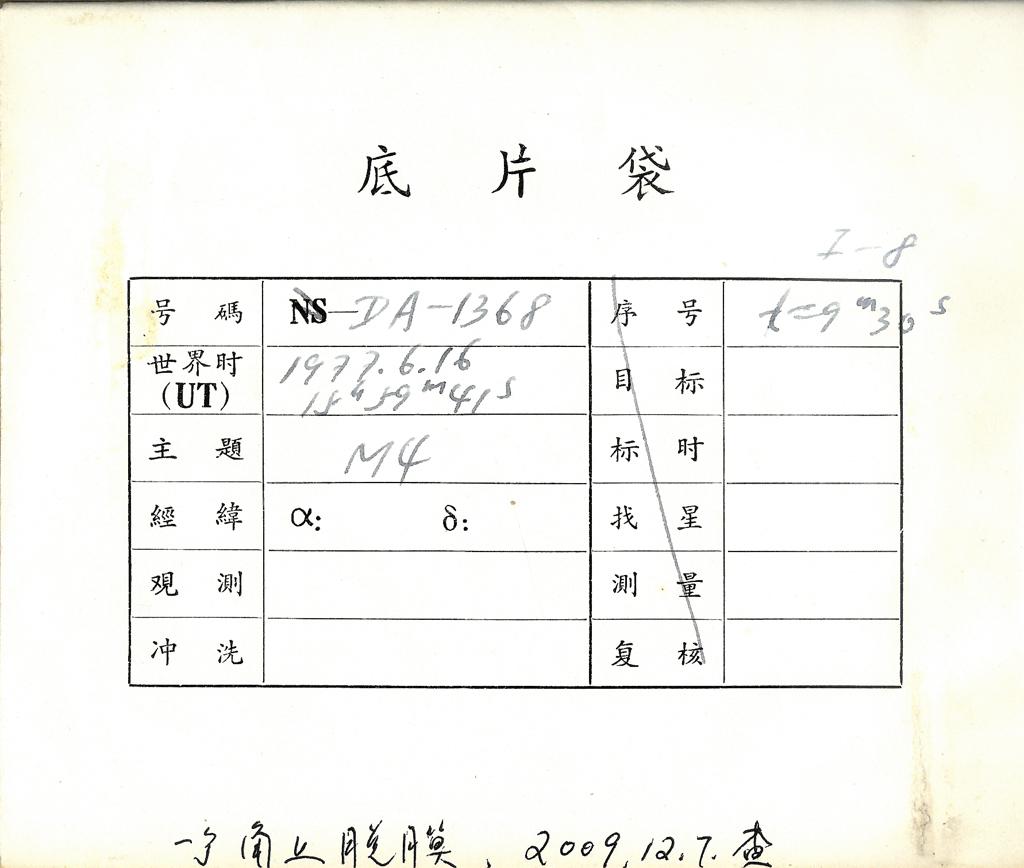 底片袋
I-8
号碼 NS-DA-1368 序号 t=9ᵐ30ˢ
世界时(UT) 1977.6.16 目标
15ʰ59ᵐ41ˢ
主題 M4 标时
經緯 α: δ: 找星
观测 測量
冲洗 复核
一个角上脱膜、2009.12.7.查